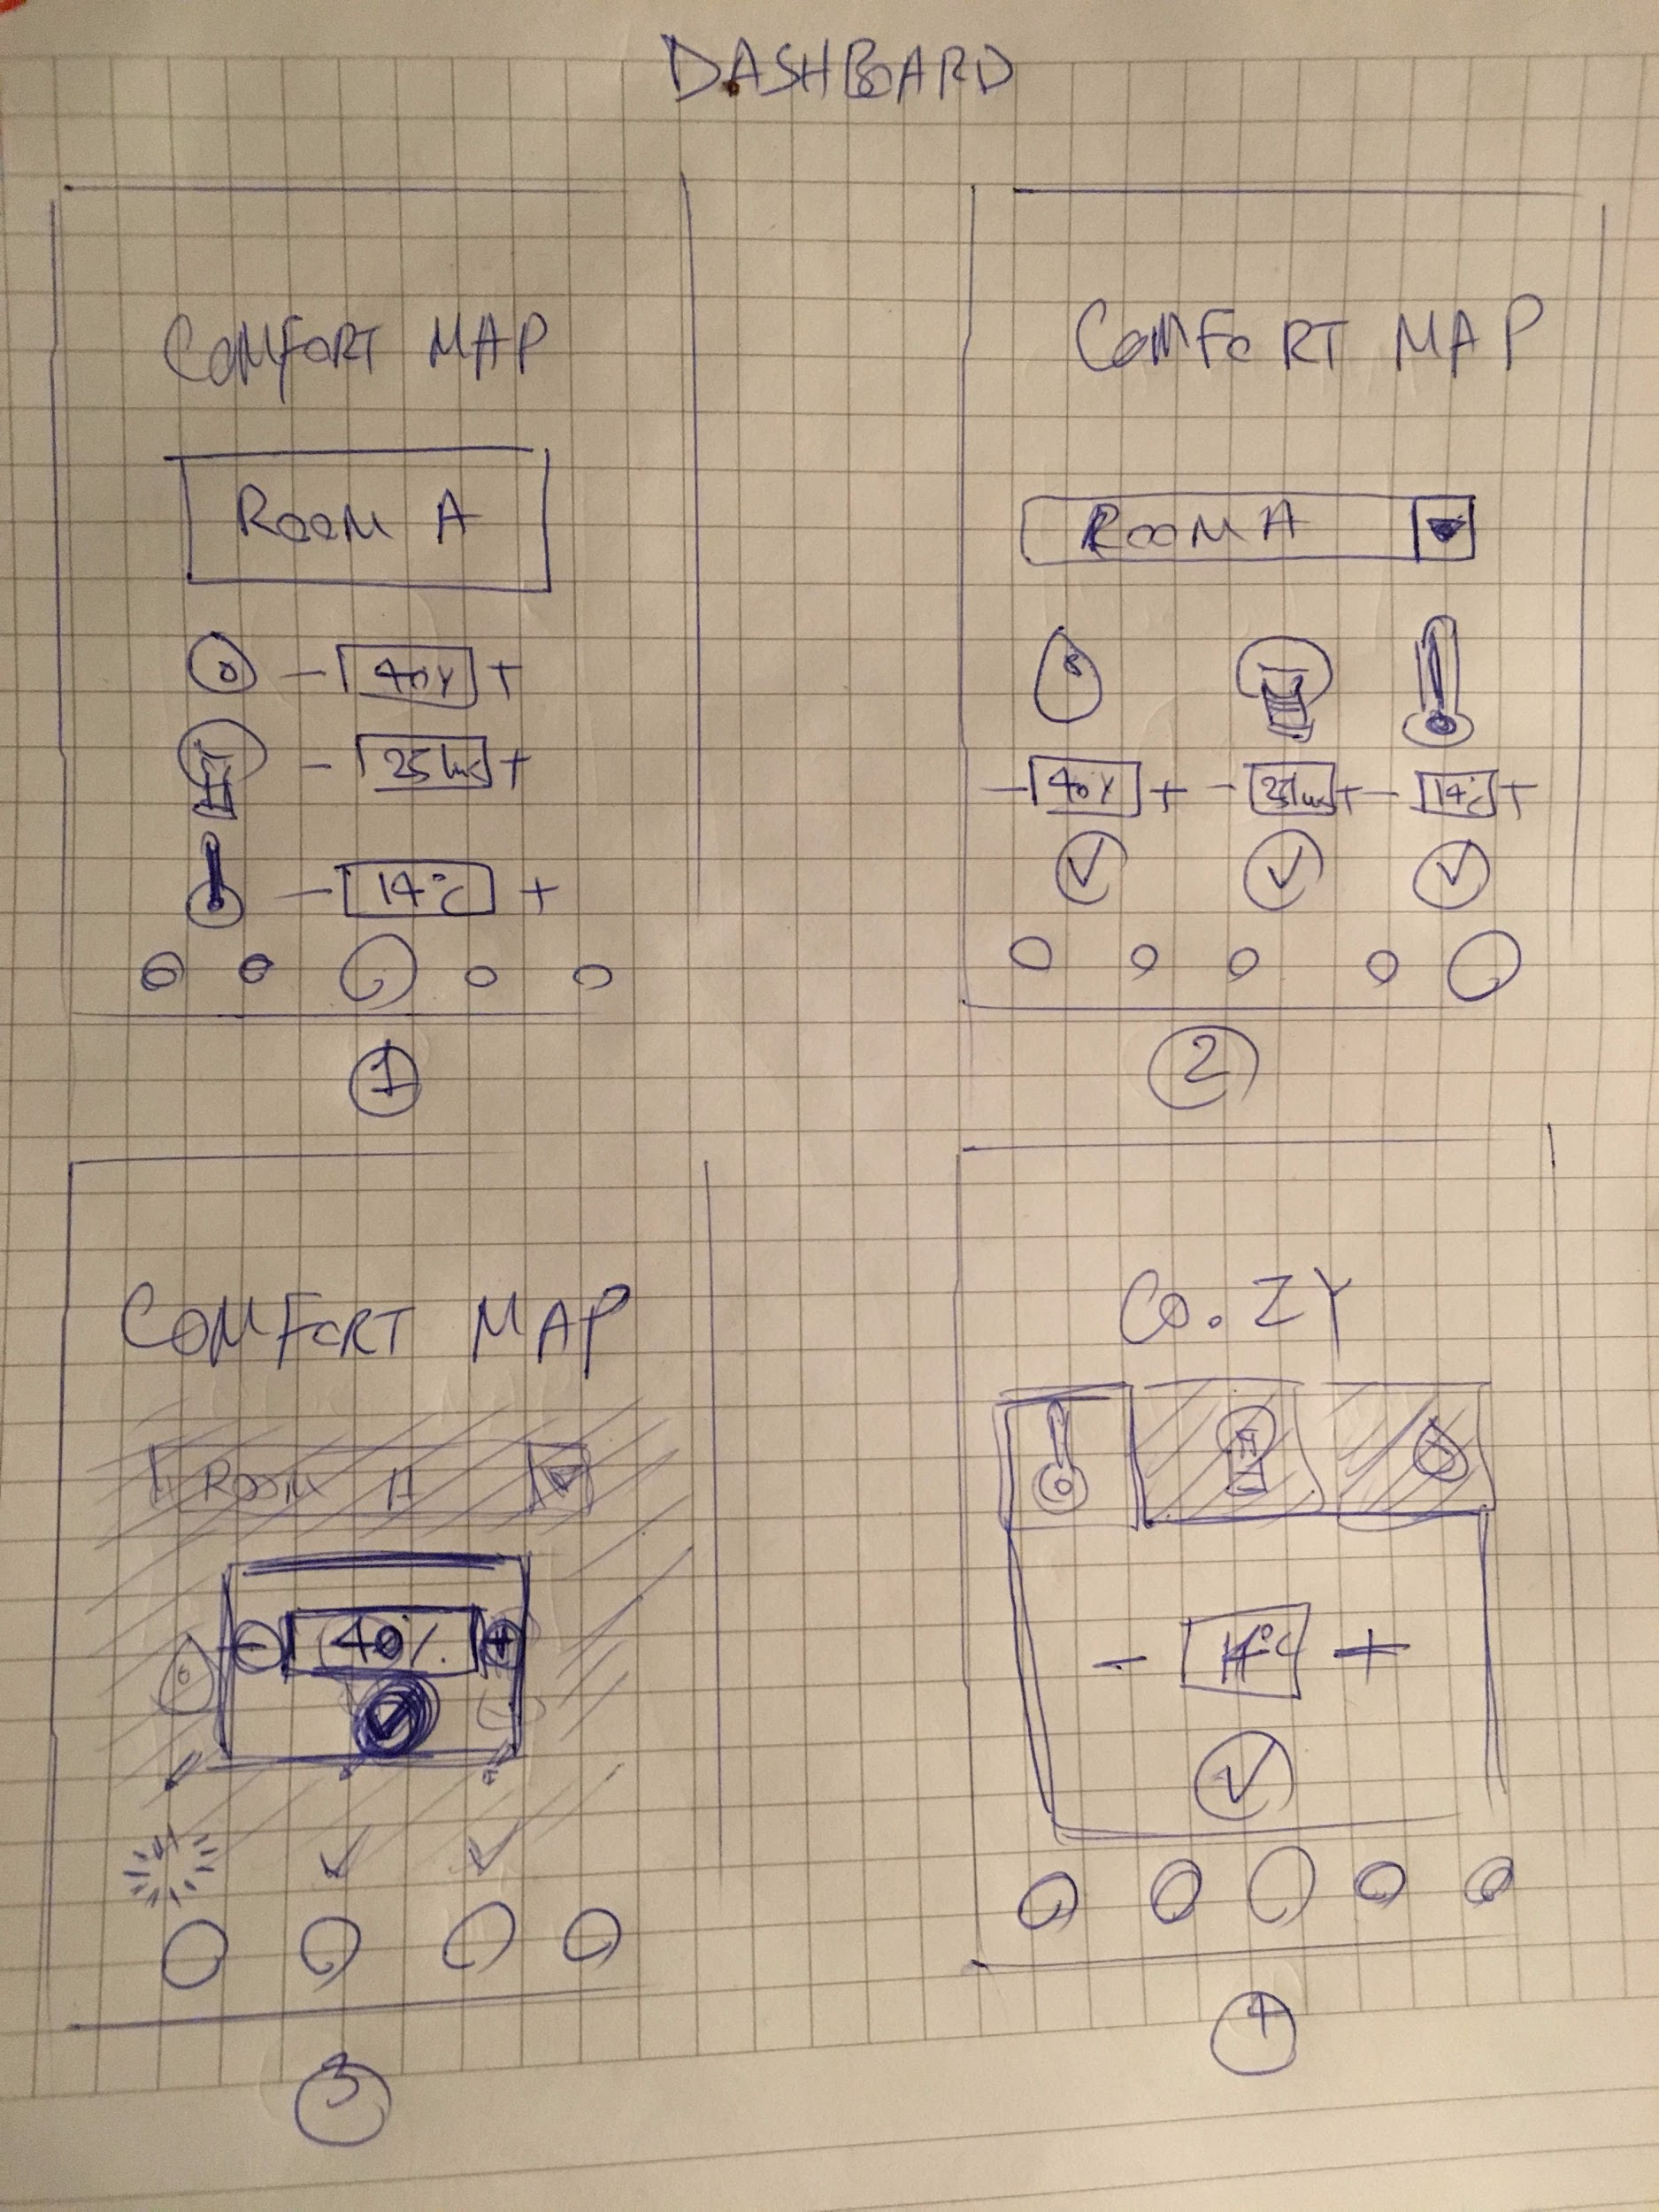 DASHBOARD
COMFORT MAP
ROOM A
- 40% +
- 25 lux +
- 14°C +
1
COMFORT MAP
ROOM A
- 40% + - 25 lux + - 14°C +
2
COMFORT MAP
ROOM A
- 40% +
3
CO.ZY
- 14°C +
4